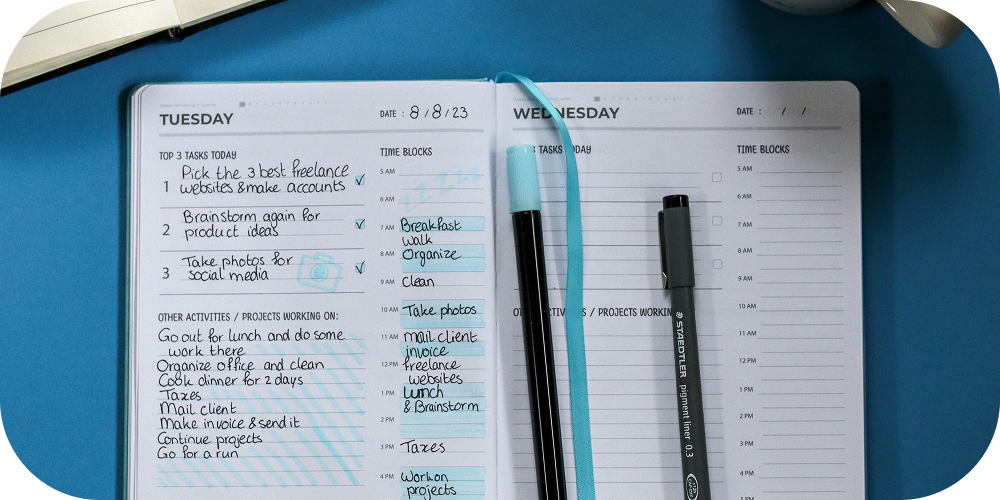 TUESDAY
DATE : 8/8/23
TOP 3 TASKS TODAY
1 Pick the 3 best freelance
websites & make accounts
2 Brainstorm again for
product ideas
3 Take photos for
social media
OTHER ACTIVITIES / PROJECTS WORKING ON:
Go out for lunch and do some
work there
Organize office and clean
Cook dinner for 2 days
Taxes
Mail client
Make invoice & send it
Continue projects
Go for a run
TIME BLOCKS
5 AM
zzzzz
6 AM
7 AM Breakfast
walk
8 AM Organize
9 AM Clean
10 AM Take photos
11 AM Mail client
invoice
12 PM freelance
websites
1 PM Lunch
& Brainstorm
2 PM
3 PM Taxes
4 PM Work on
projects
WEDNESDAY
DATE : / /
3 TASKS TODAY
/ PROJECTS WORKIN
TIME BLOCKS
5 AM
6 AM
7 AM
8 AM
9 AM
10 AM
11 AM
12 PM
1 PM
2 PM
3 PM
4 PM
STAEDTLER
pigment liner 0.3